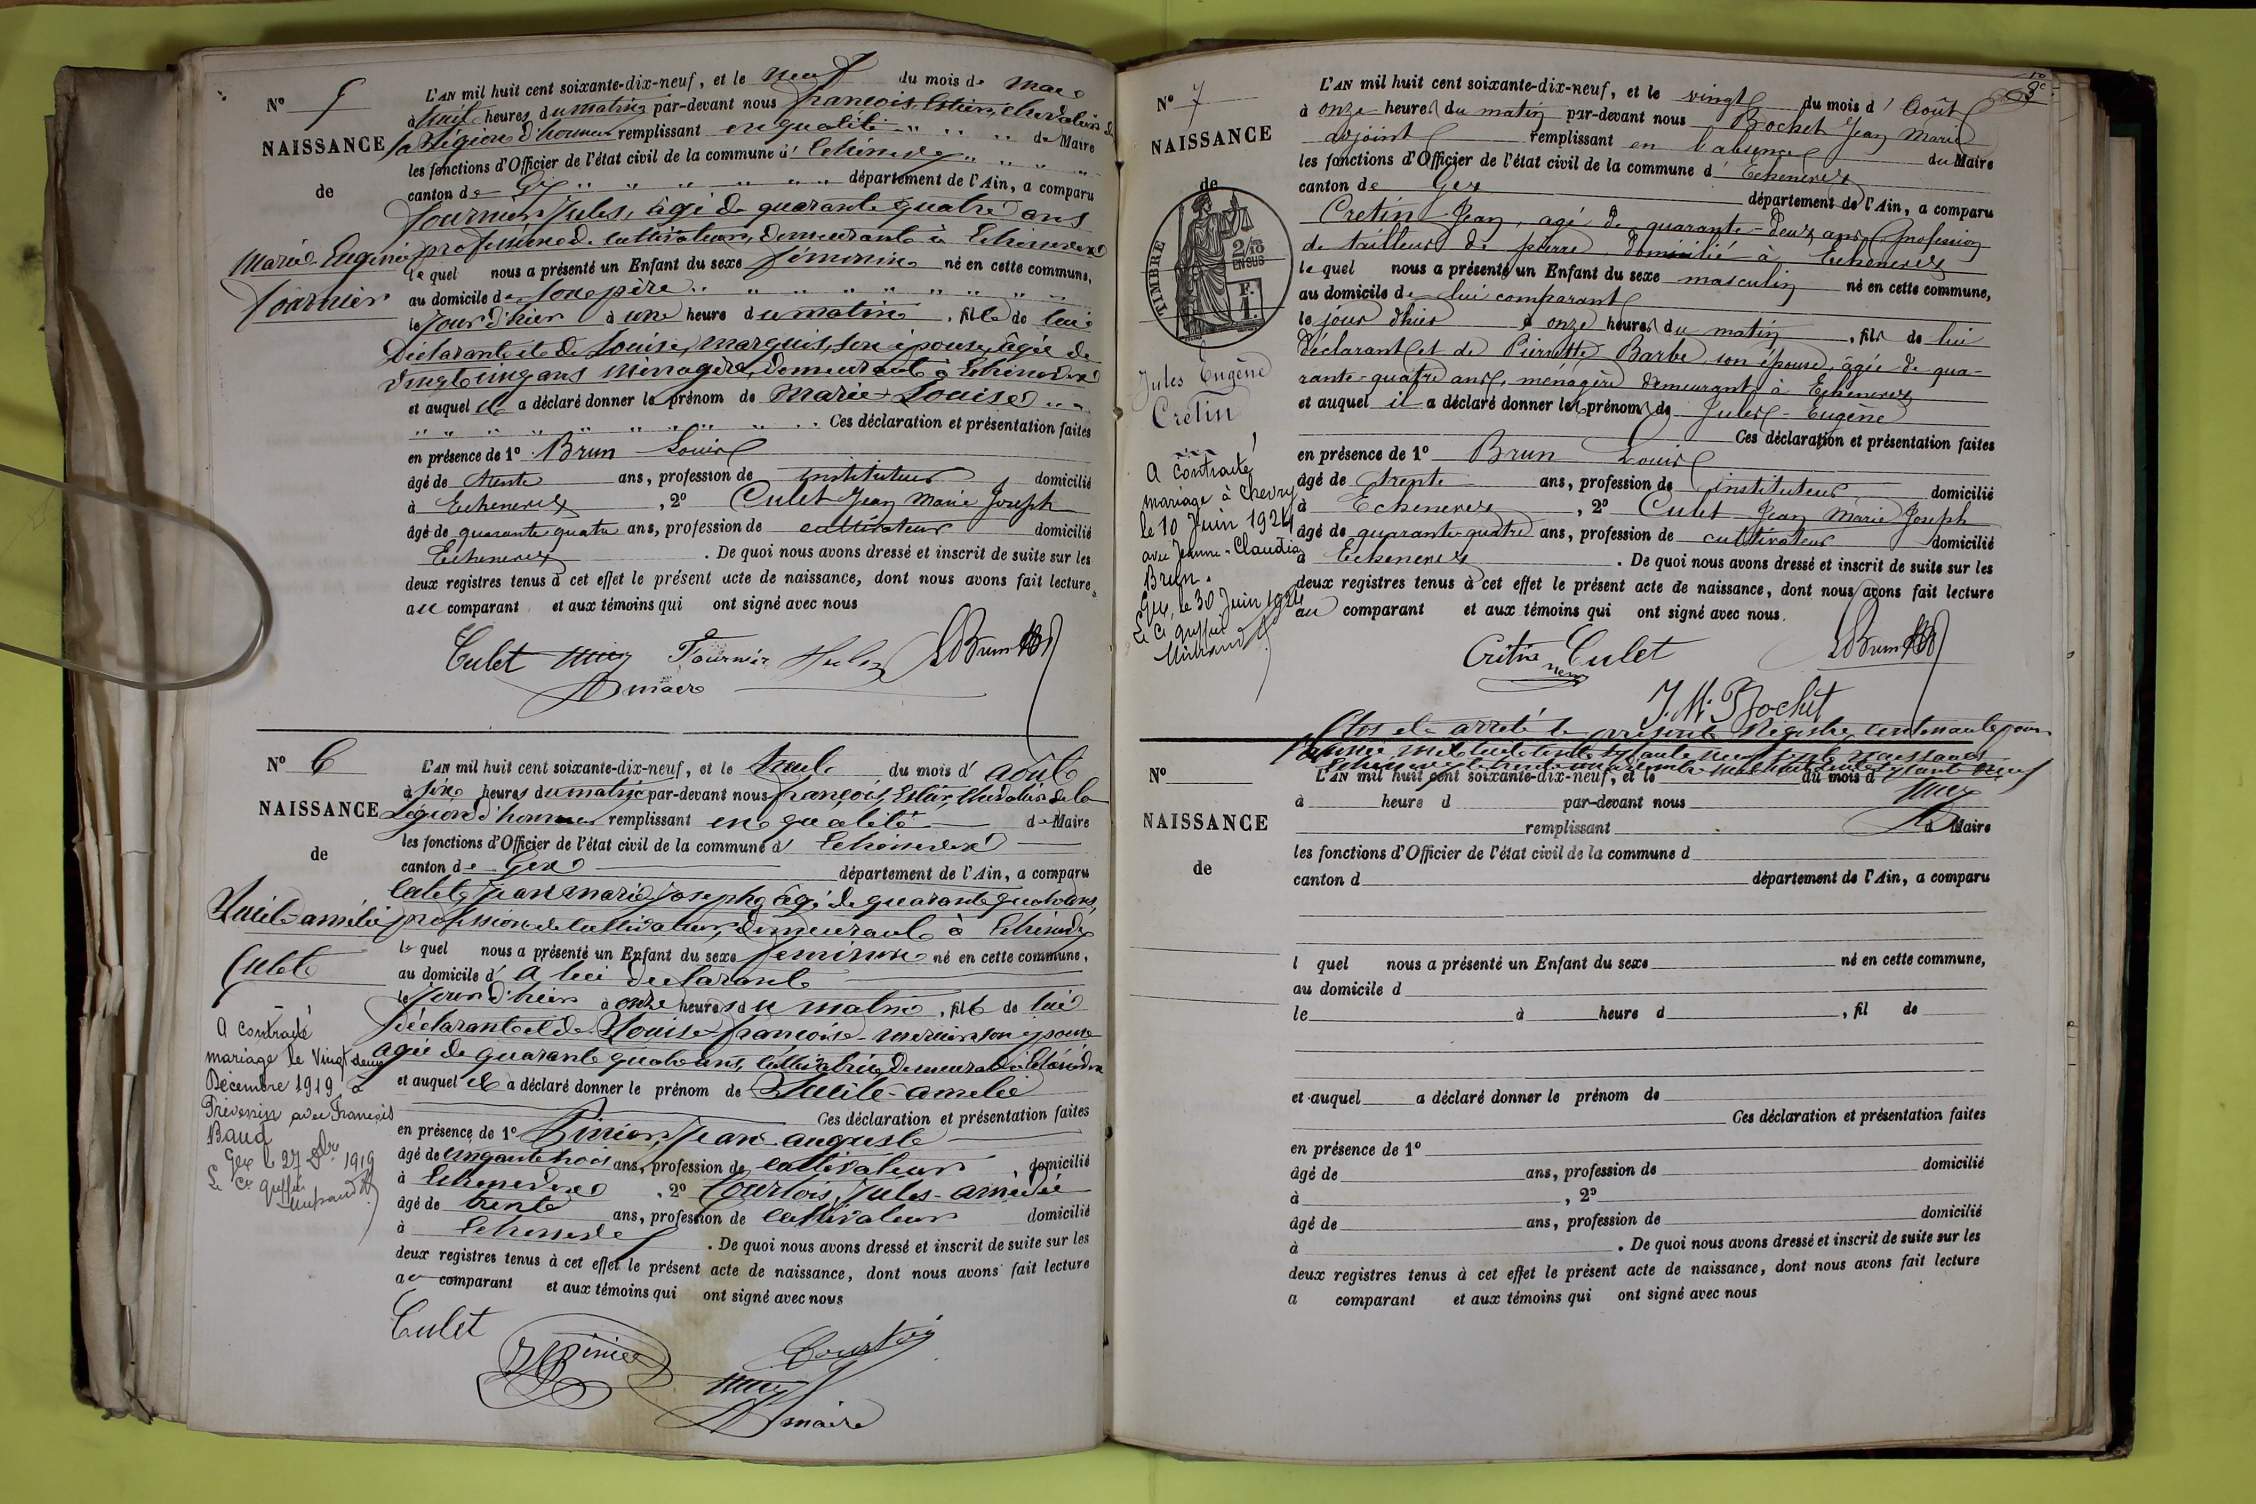 N° 5
NAISSANCE
de
Marie Eugénie
Fournier
L'AN mil huit cent soixante-dix-neuf, et le neuf du mois de Mars
à huit heures du matin par-devant nous françois Estier, chevalier de
la Légion d'honneur remplissant en qualité de Maire
les fonctions d'Officier de l'état civil de la commune d' Echenevex
canton de Gex département de l'Ain, a comparu
fournier Jules, âgé de quarante quatre ans
profession de cultivateur, demeurant à Echenevex
lequel nous a présenté un Enfant du sexe féminin né en cette commune,
au domicile de son père
le jour d'hier à une heure du matin, fille de lui
Déclarant et de Louise, marquis, son épouse, âgée de
vingt cinq ans ménagère, demeurant à Echenevex
et auquel il a déclaré donner le prénom de Marie Louise
Ces déclaration et présentation faites
en présence de 1° Brun Louis
âgé de trente ans, profession de instituteur domicilié
à Echenevex, 2° Culet Jean Marie Joseph
âgé de quarante quatre ans, profession de cultivateur domicilié
Echenevex. De quoi nous avons dressé et inscrit de suite sur les
deux registres tenus à cet effet le présent acte de naissance, dont nous avons fait lecture
au comparant et aux témoins qui ont signé avec nous
Culet Fournier Jules LBrun
maire
N° 6
NAISSANCE
de
Lucile amélie
Culet
A contracté
mariage le Vingt deux
Décembre 1919 à
Prévessin avec François
Baud
Gex le 27 Xbre 1919
Le Cis greffier
L'AN mil huit cent soixante-dix-neuf, et le du mois d' août
à six heures du matin par-devant nous françois, Estier, chevalier de la
Légion d'honneur remplissant en qualité de Maire
les fonctions d'Officier de l'état civil de la commune d' Echenevex
canton de Gex département de l'Ain, a comparu
Culet, Jean marie Joseph, âgé de quarante quatre ans,
profession de cultivateur, demeurant à Echenevex
lequel nous a présenté un Enfant du sexe féminin né en cette commune,
au domicile d' A lui déclarant
le jour d'hier à onze heures du matin, fille de lui
Déclarant et de Louise françoise mercier son épouse
agée de quarante quatre ans, cultivatrice demeurant à Echenevex
et auquel il a déclaré donner le prénom de Lucile-amélie
Ces déclaration et présentation faites
en présence de 1° Pinier, Jean auguste
âgé de cinquante trois ans, profession de cultivateur, domicilié
à Echenevex, 2° Courtois, Jules-amédée
âgé de trente ans, profession de cultivateur domicilié
à Echenevex. De quoi nous avons dressé et inscrit de suite sur les
deux registres tenus à cet effet le présent acte de naissance, dont nous avons fait lecture
au comparant et aux témoins qui ont signé avec nous
Culet
Pinier Courtois
maire
N° 7
NAISSANCE
de
TIMBRE
2/10
EN SUS
F.
1.
Jules Eugène
Cretin
A contracté
mariage à Chevry
le 10 Juin 1924
avec Jeanne-Claudia
Brun.
Gex, le 30 Juin 1924
Le Cis greffier
L'AN mil huit cent soixante-dix-neuf, et le vingt du mois d' Août
à onze heures du matin par-devant nous Bochet Jean Marie
adjoint remplissant en l'absence du Maire
les fonctions d'Officier de l'état civil de la commune d' Echenevex
canton de Gex département de l'Ain, a comparu
Cretin Jean, agé de quarante-deux ans, profession
de tailleur de pierre domicilié à Echenevex
lequel nous a présenté un Enfant du sexe masculin né en cette commune,
au domicile de lui comparant
le jour d'hier à onze heures du matin, fils de lui
déclarant et de Pierrette Barbe son épouse, âgée de qua-
rante-quatre ans, ménagère demeurant à Echenevex
et auquel il a déclaré donner les prénoms de Jules-Eugène
Ces déclaration et présentation faites
en présence de 1° Brun Louis
âgé de trente ans, profession de instituteur domicilié
à Echenevex, 2° Culet Jean Marie Joseph
âgé de quarante-quatre ans, profession de cultivateur domicilié
à Echenevex. De quoi nous avons dressé et inscrit de suite sur les
deux registres tenus à cet effet le présent acte de naissance, dont nous avons fait lecture
au comparant et aux témoins qui ont signé avec nous.
Culet LBrun
J. M. Bochet
Clos et arrêté le présent Registre contenant pour
l'année mil huit cent soixante dix neuf sept naissances
Echenevex le trente un décembre mil huit cent soixante dix neuf
N°
NAISSANCE
de
L'AN mil huit cent soixante-dix-neuf, et le du mois d
à heure d par-devant nous
remplissant d Maire
les fonctions d'Officier de l'état civil de la commune d
canton d département de l'Ain, a comparu
l quel nous a présenté un Enfant du sexe né en cette commune,
au domicile d
le à heure d, fil de
et auquel a déclaré donner le prénom de
Ces déclaration et présentation faites
en présence de 1°
âgé de ans, profession de domicilié
à, 2°
âgé de ans, profession de domicilié
à. De quoi nous avons dressé et inscrit de suite sur les
deux registres tenus à cet effet le présent acte de naissance, dont nous avons fait lecture
a comparant et aux témoins qui ont signé avec nous